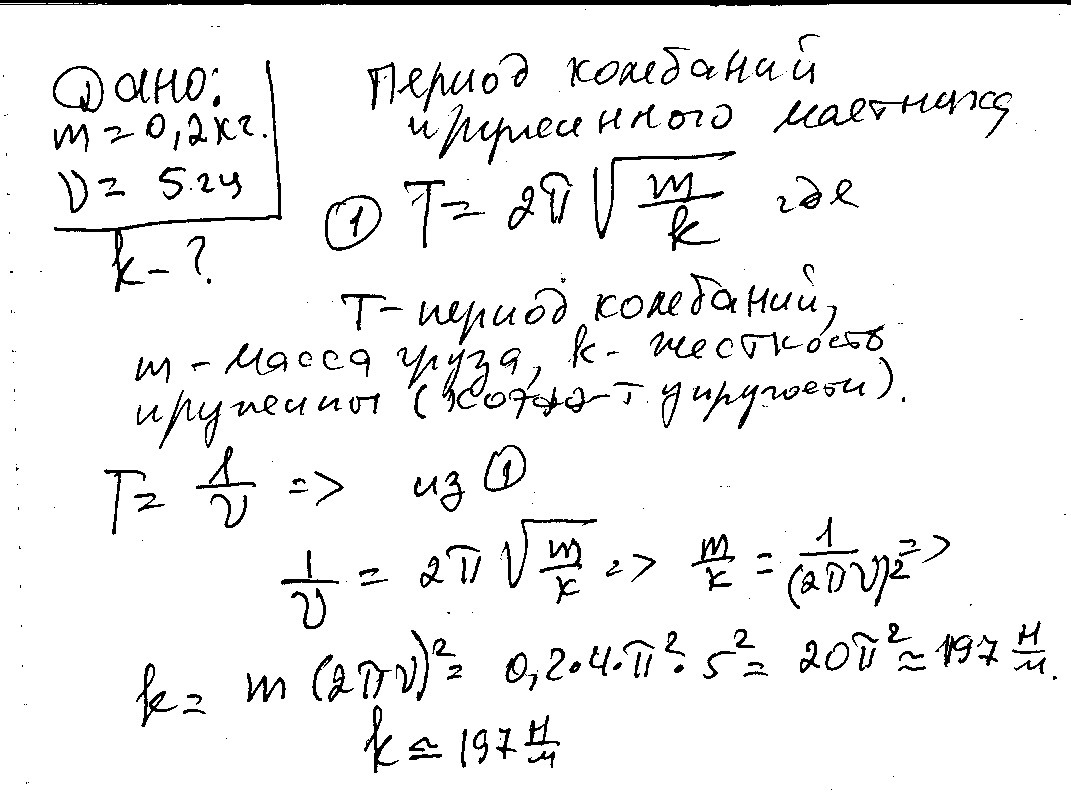 Дано:
m = 0,2 кг.
ν = 5 гц
k - ?
Период колебаний
пружинного маятника
① T = 2π√(m/k) где
T - период колебаний,
m - масса груза, k - жесткость
пружины ( упругости).
T = 1/ν => из ①
1/ν = 2π√(m/k) => m/k = 1/(2πν)² =>
k = m (2πν)² = 0,2·4·π²·5² = 20π² ≃ 197 Н/м.
k ≃ 197 Н/м